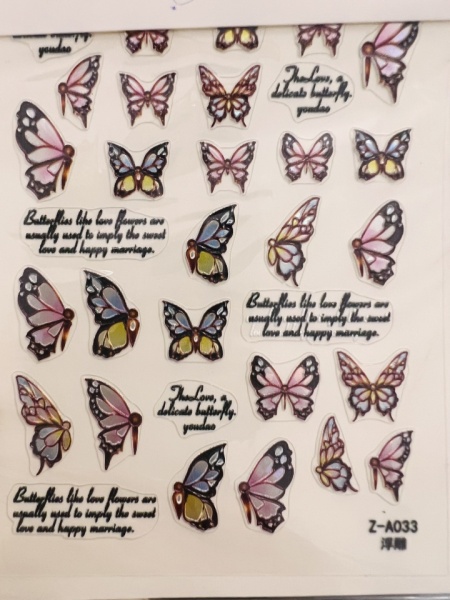 youdao
The Love, a
delicate butterfly.
youdao
Butterflies like love flowers are
usually used to imply the sweet
love and happy marriage.
Butterflies like love flowers are
usually used to imply the sweet
love and happy marriage.
The Love, a
delicate butterfly.
youdao
Butterflies like love flowers are
usually used to imply the sweet
love and happy marriage.
Z-A033
浮雕